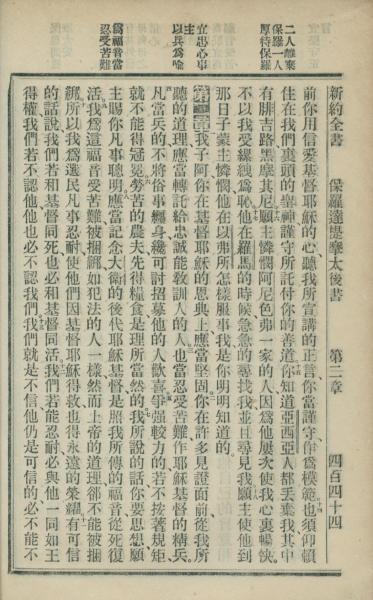 新約全書 保羅達提摩太後書 第二章 四百四十四
二人離棄
保羅一人
厚待保羅
宜忠心事
以兵為喻
為福音當
忍受苦難
前你用信愛基督耶穌的心聽我所宣講的正言你當謹守作為模範也須仰賴
住在我們裏頭的聖神謹守所託付你的善道你知道亞西亞人都丟棄我其中
有腓吉路黑摩其尼願主憐憫阿尼色弗一家的人因為他屢次使我心裏暢快
不以我受縲絏為恥他在羅馬的時候急急的尋找我並且尋見我願主使他到
那日子蒙主憐憫他在以弗所怎樣服事我是你明明知道的
第二章我子阿你在基督耶穌的恩典上應當堅固你在許多見證面前從我所
聽的道理應當轉託給忠誠能教訓人的人也當忍受苦難作耶穌基督的精兵
凡當兵的不將俗事纏身纔可討招募他的人歡喜爭強較力的若不按著規矩
就不能得冠冕勞苦的農夫先得糧食是理所當然的我所說的話你要思想願
主賜你凡事聰明應當記念大衛的後代耶穌基督是照我所傳的福音從死復
活我為這福音受苦難被捆綁如犯法的人一樣然而上帝的道理卻不能被捆
綁所以我為選民凡事忍耐使他們因基督耶穌得救也得永遠的榮耀有可信
的話說我們若和基督同死也必和基督同活我們若能忍耐必與他一同如王
得權我們若不認他他也必不認我們我們就是不信他仍是可信的必不能不